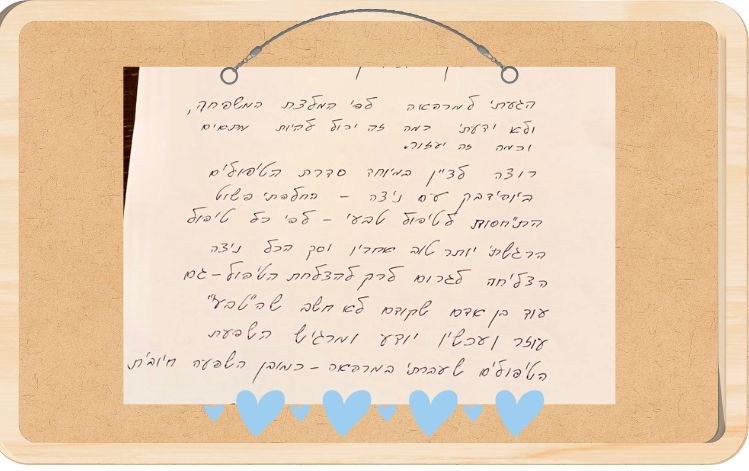 הגעתי למרפאה לפי המלצת המשפחה,
ולא ידעתי כמה זה יכול להיות מתאים
וכמה זה יעזור.
רוצה לציין במיוחד סדרת הטיפולים
עם ניצה - החלפתי פשוט
התייחסות לטיפול טבעי - לפי כל טיפול
הרגשתי יותר טוב אחריו וסך הכל ניצה
הצליחה לגרום לרק להצלחת הטיפול - גם
עוד בן אדם שקודם לא חשב שה"טבע"
עוזר ועכשיו יודע ומרגיש השפעת
הטיפולים שעברתי במרפאה - כמובן השפעה חיובית